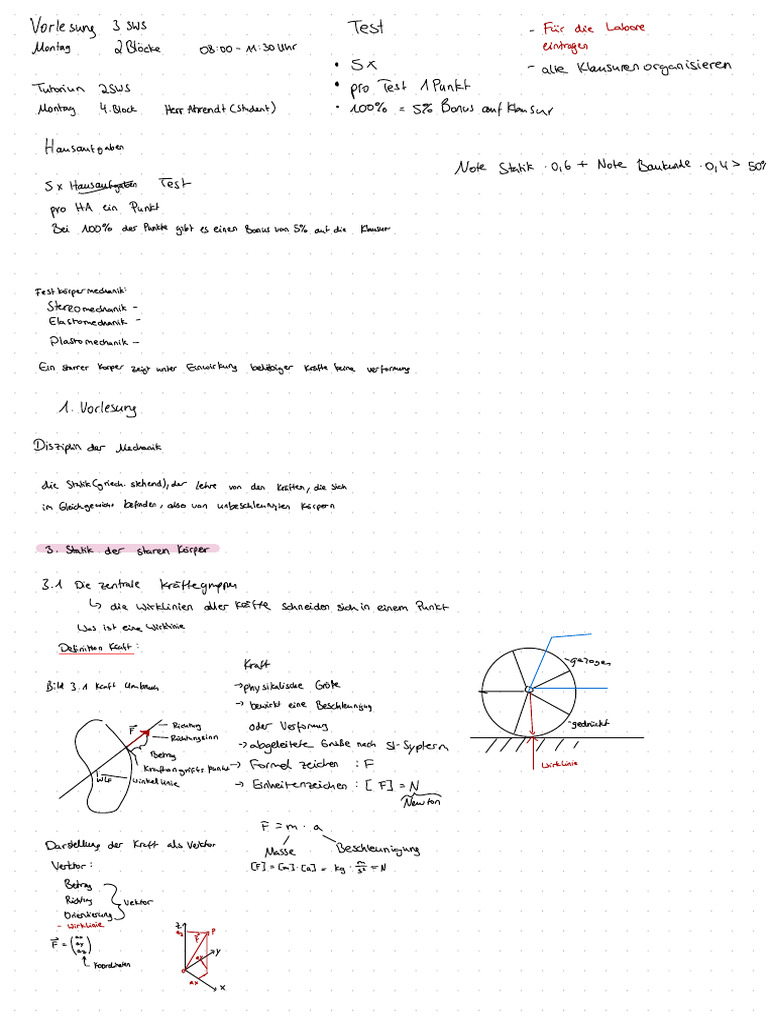 Vorlesung 3 SWS
Montag 2 Blöcke 08:00 - 11:30 Uhr
Tutorium 2SWS
Montag 4. Block Herr Ahrendt (Student)
Test
• 5x
• pro Test 1 Punkt
• 100% = 5% Bonus auf Klausur
- Für die Labore
eintragen
- alte Klausuren organisieren
Note Statik · 0,6 + Note Baukunde · 0,4 > 50%
Hausaufgaben
5x Hausaufgaben Test
pro HA ein Punkt
Bei 100% der Punkte gibt es einen Bonus von 5% auf die Klausur
Festkörpermechanik:
Stereomechanik -
Elastomechanik -
Plastomechanik -
Ein starrer Körper zeigt unter Einwirkung beliebiger Kräfte keine verformung
1. Vorlesung
Disziplin der Mechanik
die Statik (griech. stehend), der Lehre von den Kräften, die sich
im Gleichgewicht befinden, also von unbeschleunigten Körpern
3. Statik der staren Körper
3.1 Die zentrale Kräftegruppe
↳ die Wirklinien aller Kräfte schneiden sich in einem Punkt
Was ist eine Wirklinie
Definition Kraft:
Bild 3.1 Kraft Umbruch
F
Richtung
Richtungsinn
Betrag
Kraftangriffspunkt
WLF
Winkellinie
Kraft
→ physikalische Größe
→ bewirkt eine Beschleunigung
oder Verformung
→ abgeleitete Größe nach SI-System
→ Formel zeichen : F
→ Einheitenzeichen : [F] = N
Newton
F = m · a
Masse Beschleunigung
[F] = [m] · [a] = kg · m/s² = N
gezogen
gedrückt
Wirklinie
Darstellung der Kraft als Vektor
Vektor:
Betrag
Richtung
Orientierung
Vektor
- Wirklinie
F = (ax ay az)
Koordinaten
z
az
P
F
y
ay
ax
x